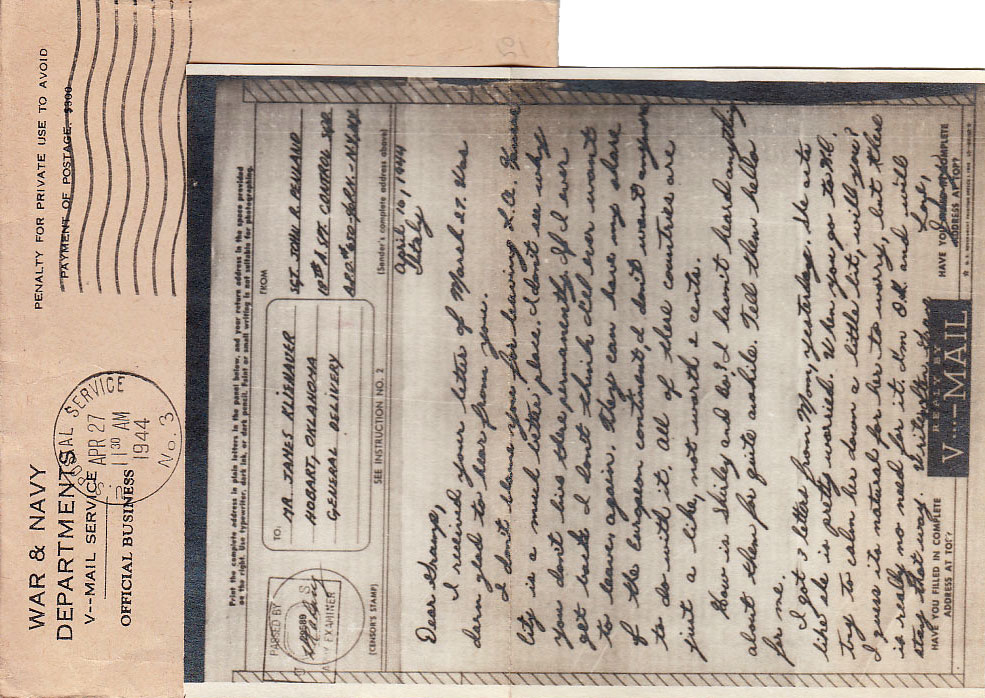 WAR & NAVY
DEPARTMENTS
V--MAIL SERVICE
OFFICIAL BUSINESS
POSTAL SERVICE
APR 27
11 30 AM
1944
No. 3
PENALTY FOR PRIVATE USE TO AVOID
PAYMENT OF POSTAGE, $300
Print the complete address in plain letters in the panel below, and your return address in the space provided
on the right. Use typewriter, dark ink, or dark pencil. Faint or small writing is not suitable for photographing.
PASSED BY
ARMY EXAMINER
(CENSOR'S STAMP)
TO:
MR. JAMES KLIEHAUER
HOBART, OKLAHOMA
GENERAL DELIVERY
SEE INSTRUCTION NO. 2
FROM
SGT. JOHN R.
A.P.O. # 650 - N.Y. N.Y.
(Sender's complete address above)
April 16, 1944
Italy
Dear Gramp,
I received your letter of March 27. Was
darn glad to hear from you.
I don't blame you for leaving L.A.
City is a much better place. I don't see why
you don't live there permanently. If I ever
get back I don't think I'll ever want
to leave, again. They can have my share
of the European continent, I don't want any more
to do with it. All of these countries are
just a like, not worth 2 cents.
How is Shirley and Les? I haven't heard anything
about them for quite awhile. Tell them hello
for me.
I got 3 letters from Mom, yesterday. She acts
like she is pretty worried. When you go to
try to calm her down a little bit, will you?
I guess its natural for her to worry, but there
is really no need for it. I'm O.K. and will
stay that way.
Love,
HAVE YOU FILLED IN COMPLETE
ADDRESS AT TOP?
REPLY BY
V...-MAIL
HAVE YOU FILLED IN COMPLETE
ADDRESS AT TOP?